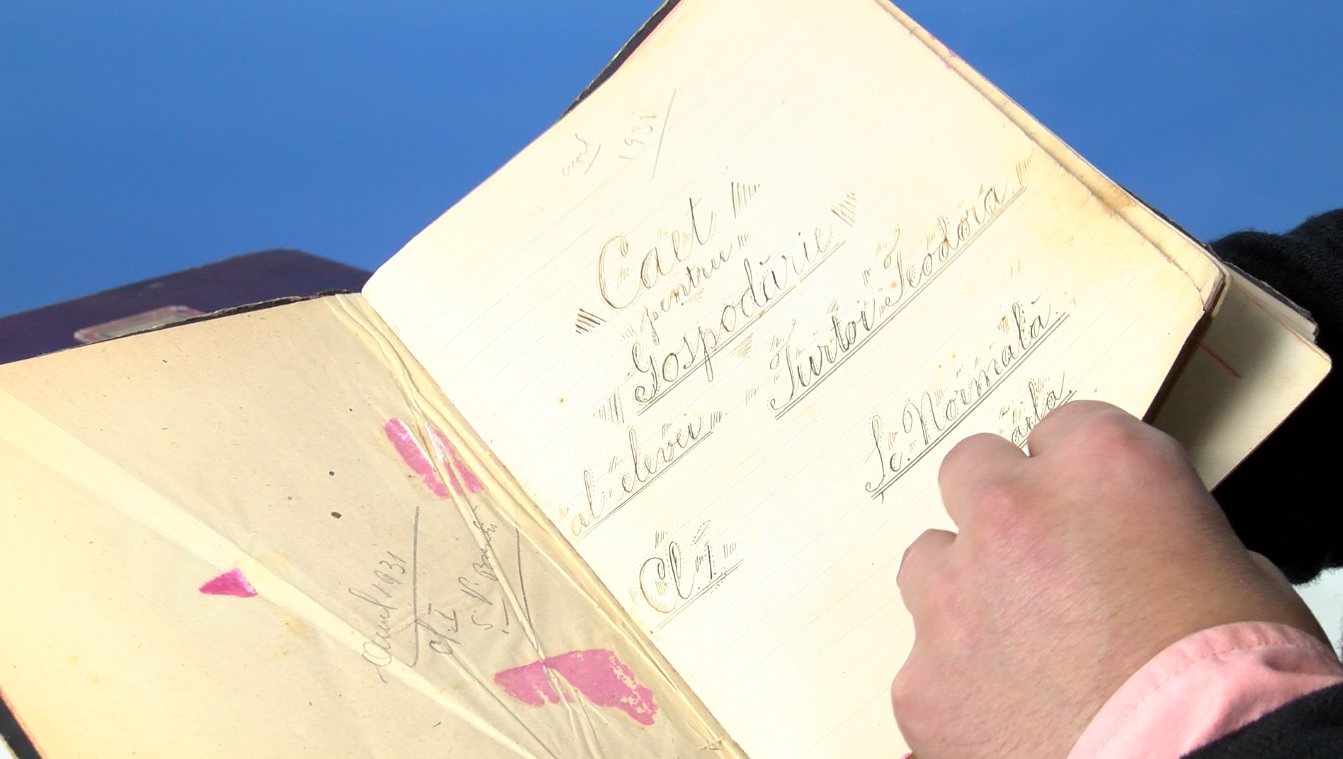 anul 1931
cl. I
S. N.
anul
1931
Caet
pentru
Gospodărie
al elevei Turtoi Teodora
Sc. Normală
Cl. I